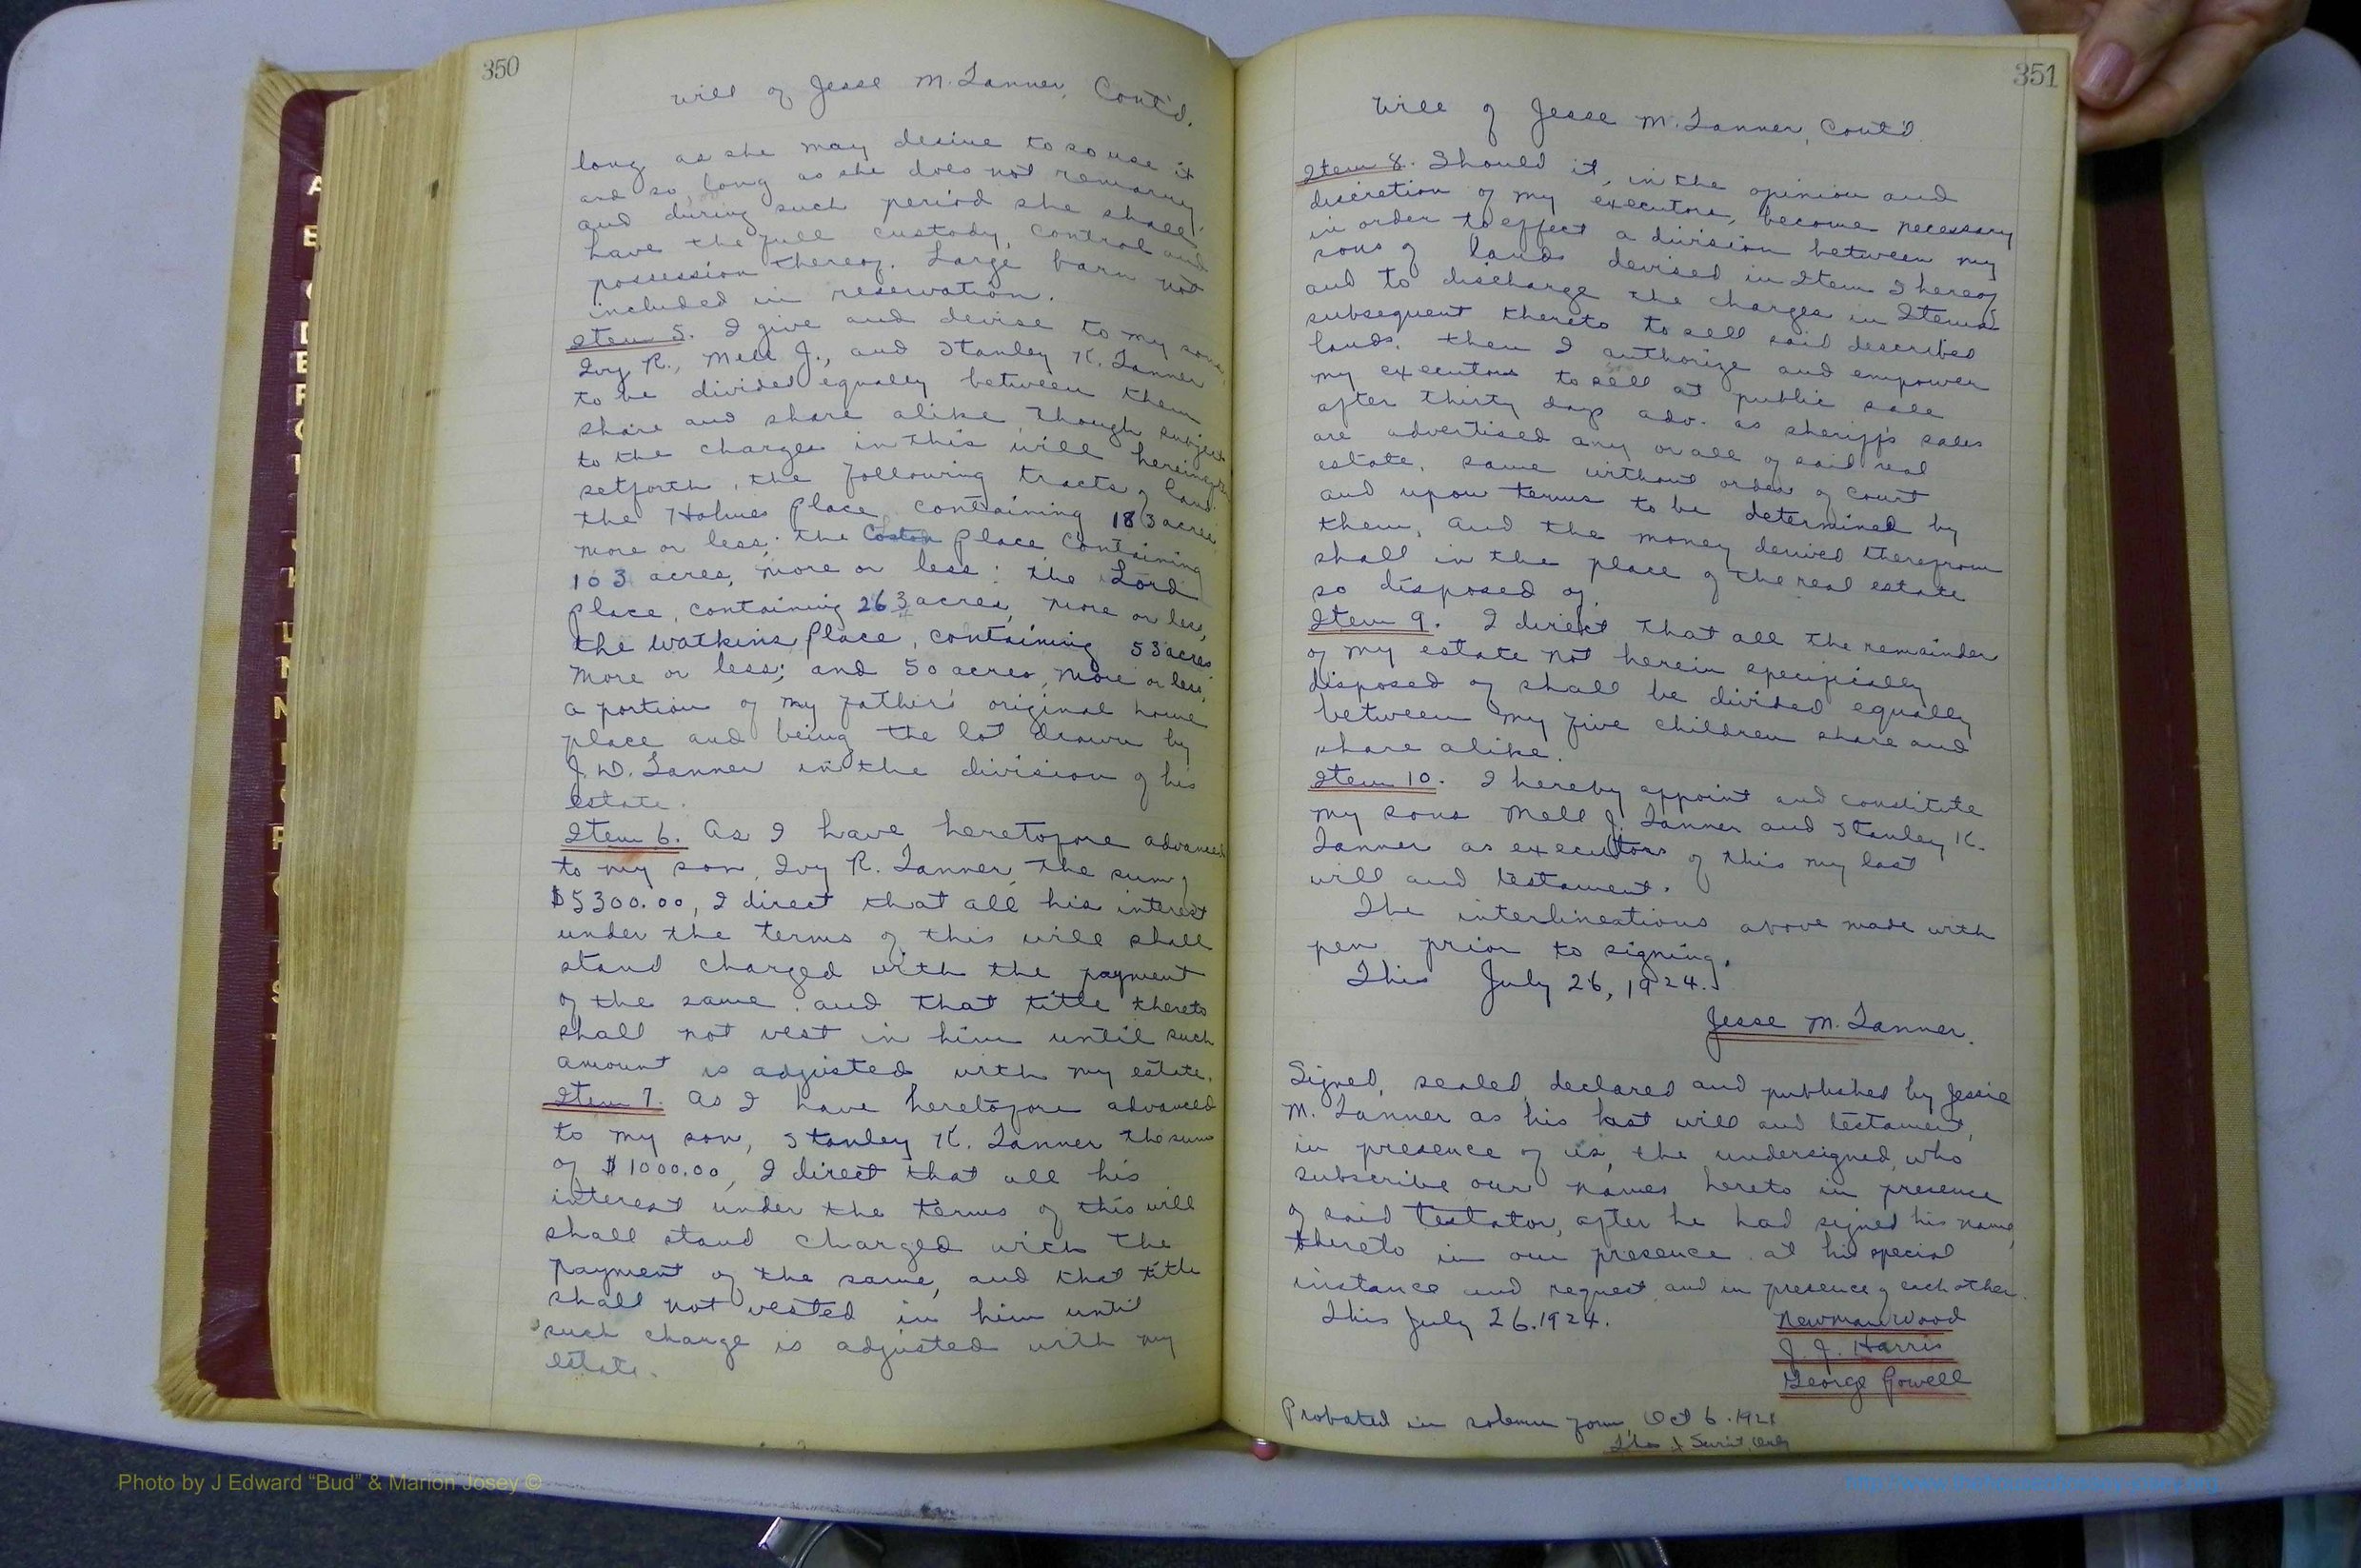 350
will of Jesse M. Tanner, Cont'd.
long as she may desire to so use it
and so long as she does not remarry
and during such period she shall
have the full custody, control and
possession thereof. Large barn not
included in reservation.
Item 5. I give and devise to my sons,
Ivy R., Mell J., and Stanley K. Tanner
to be divided equally between them
share and share alike, though subject
to the charges in this will hereinafter
set forth, the following tracts of land:
the Holmes place containing 183 acres
more or less; the Coston place containing
103 acres, more or less; the Lord
place, containing 263 acres, more or less,
the Watkins place, containing 53 acres
more or less; and 50 acres, more or less,
a portion of my father's original home
place and being the lot drawn by
J. D. Tanner in the division of his
estate.
Item 6. As I have heretofore advanced
to my son, Ivy R. Tanner, the sum of
$5300.00, I direct that all his interest
under the terms of this will shall
stand charged with the payment
of the same and that title thereto
shall not vest in him until such
amount is adjusted with my estate.
Item 7. As I have heretofore advanced
to my son, Stanley K. Tanner the sum
of $1000.00, I direct that all his
interest under the terms of this will
shall stand charged with the
payment of the same, and that title
shall not vested in him until
such charge is adjusted with my
estate.
351
Will of Jesse M. Tanner, Cont'd
Item 8. Should it, in the opinion and
discretion of my executors, become necessary
in order to effect a division between my
sons of lands devised in Item 5 hereof
and to discharge the charges in Items
subsequent thereto to sell said described
lands, then I authorize and empower
my executors to sell at public sale
after thirty days adv. as sheriff's sales
are advertised any or all of said real
estate, same without order of court
and upon terms to be determined by
them, and the money derived therefrom
shall in the place of the real estate
so disposed of.
Item 9. I direct that all the remainder
of my estate not herein specifically
disposed of shall be divided equally
between my five children share and
share alike.
Item 10. I hereby appoint and constitute
my sons Mell J. Tanner and Stanley K.
Tanner as executors of this my last
will and testament.
The interlineations above made with
pen prior to signing.
This July 26, 1924.
Jesse M. Tanner.
Signed, sealed, declared and published by Jessie
M. Tanner as his last will and testament,
in presence of us, the undersigned, who
subscribe our names hereto in presence
of said testator, after he had signed his name
thereto in our presence at his special
instance and request and in presence of each other.
This July 26. 1924.
Newman Wood
J. J. Harris
George Powell
Probated in solemn form, Oct 6. 1928
Photo by J Edward "Bud" & Marion Josey ©